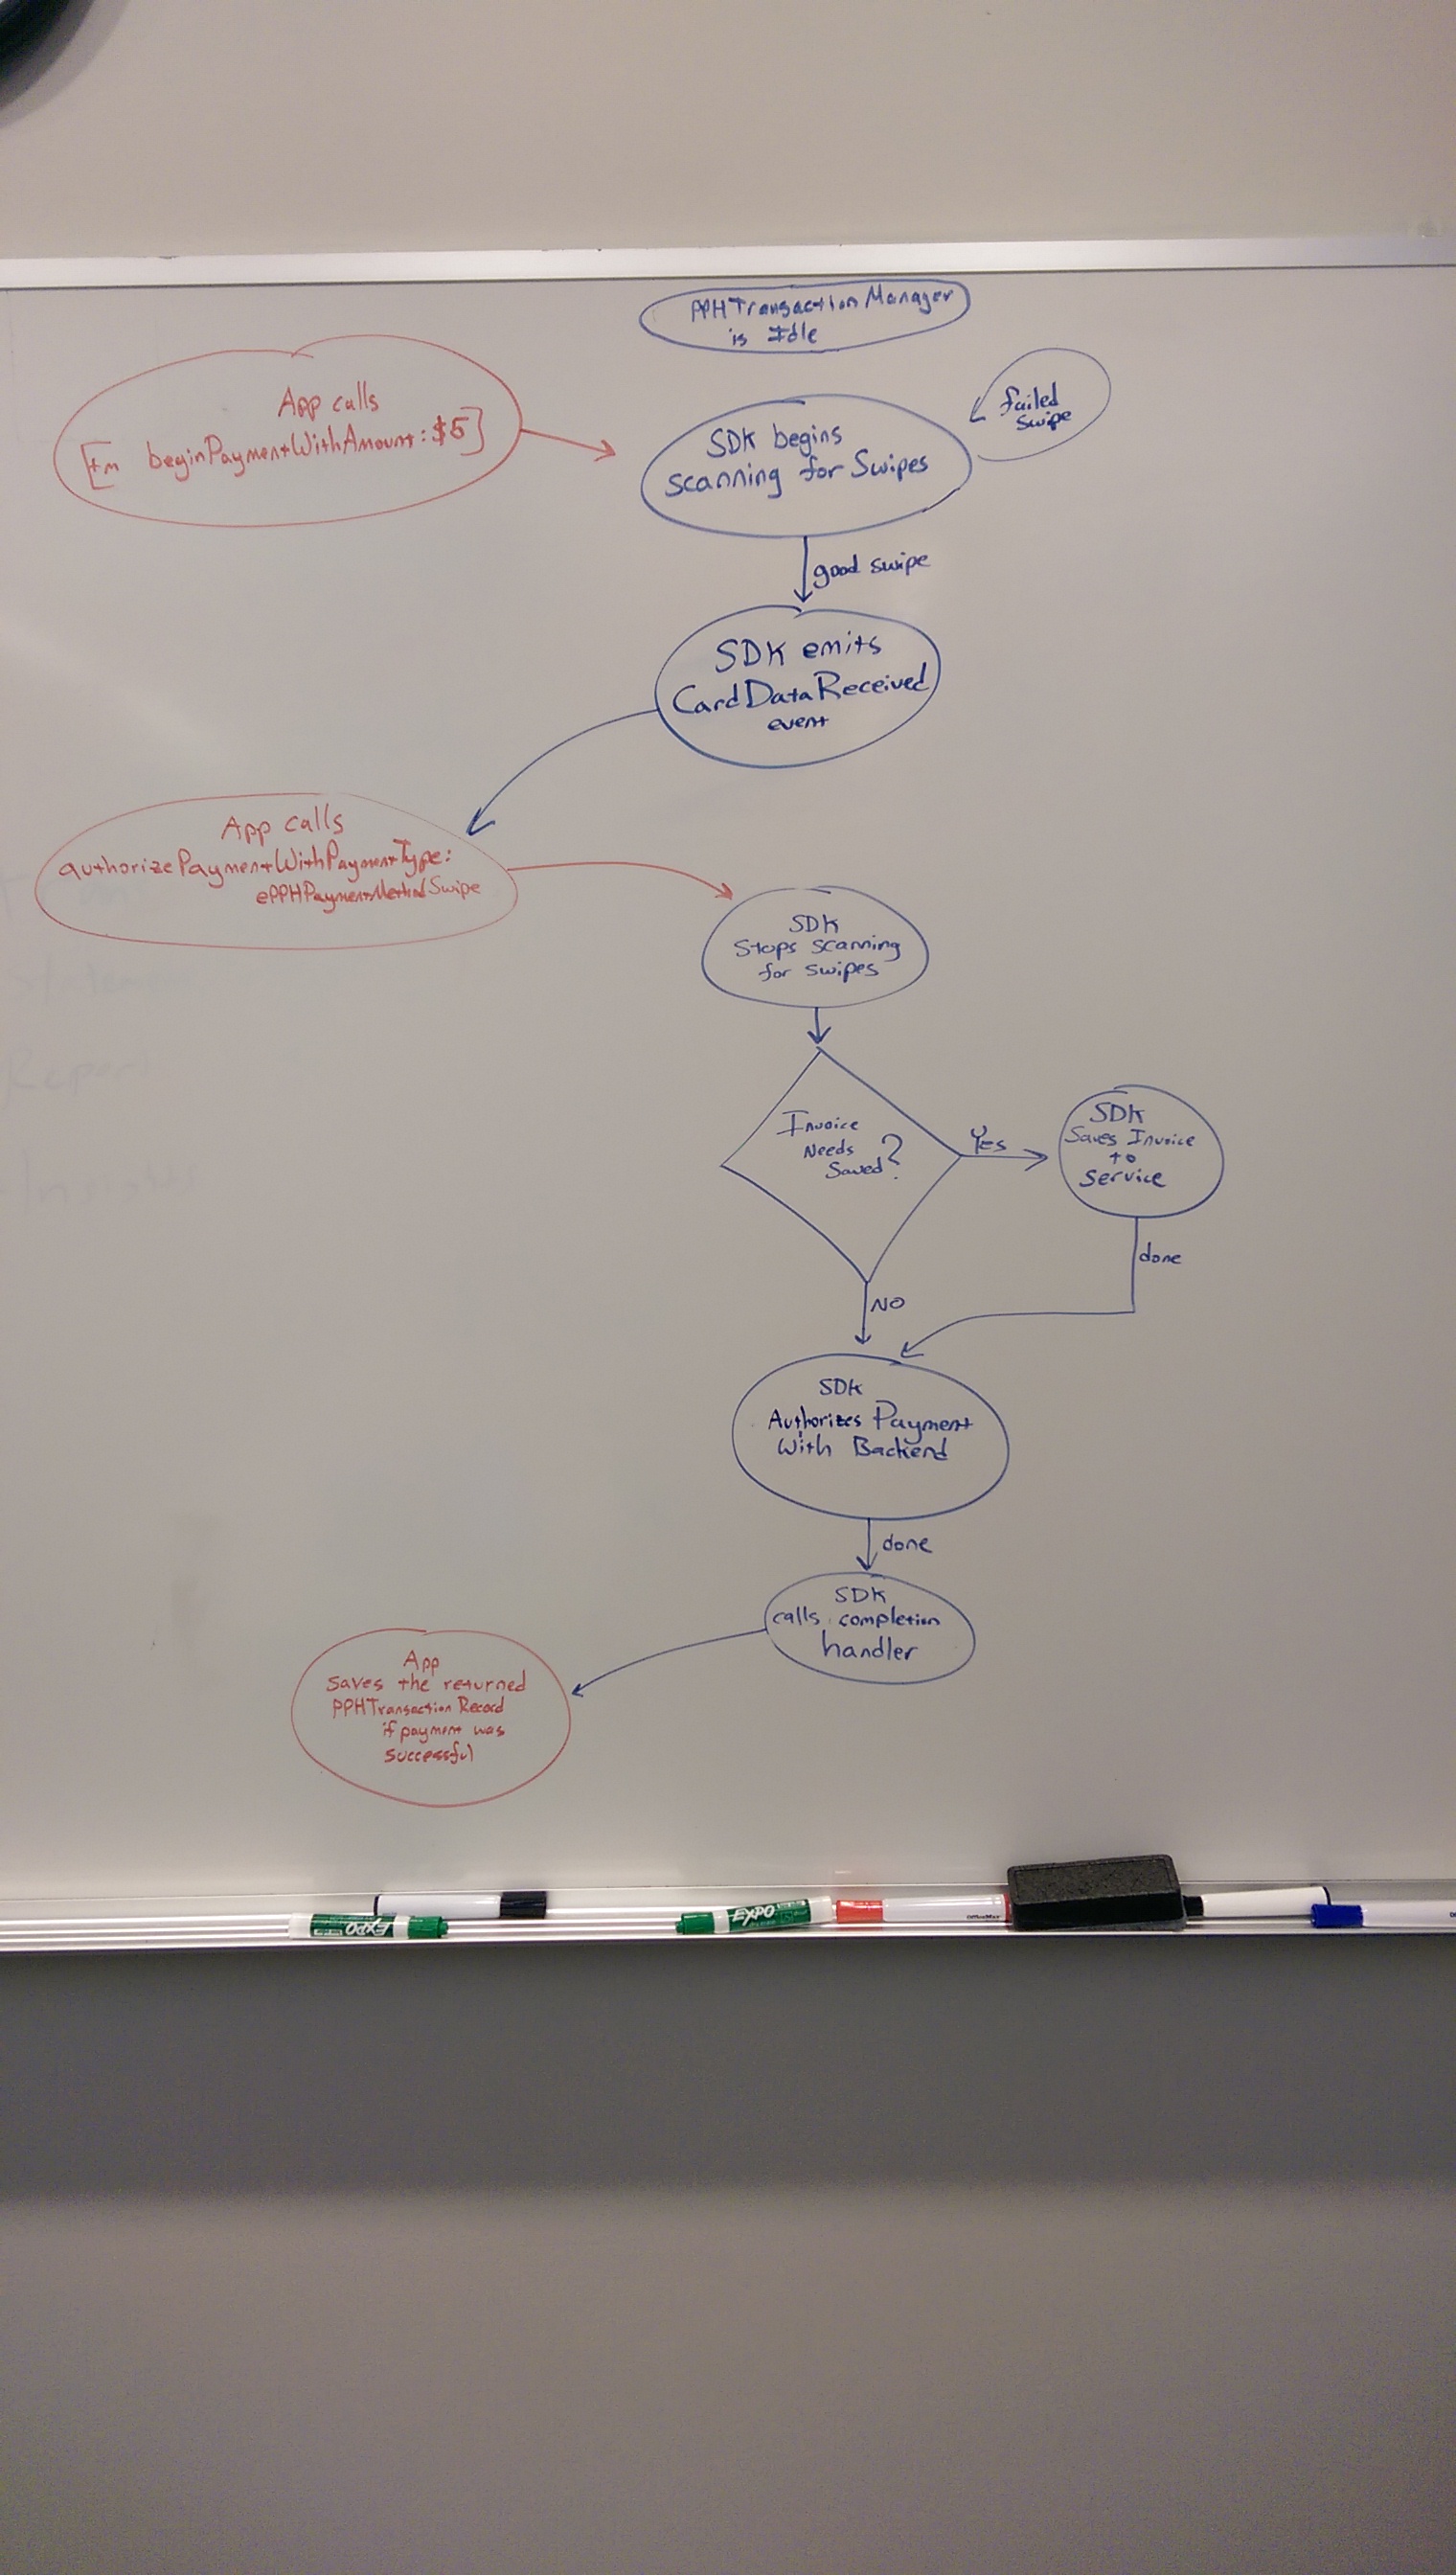 PPHTransactionManager
is Idle
App calls
[tm beginPaymentWithAmount:$5]
SDK begins
scanning for Swipes
failed
swipe
good swipe
SDK emits
CardDataReceived
event
App calls
authorizePaymentWithPaymentType:
ePPHPaymentMethodSwipe
SDK
Stops scanning
for swipes
Invoice
Needs
Saved?
Yes
SDK
Saves Invoice
to
Service
done
NO
SDK
Authorizes Payment
With Backend
done
SDK
calls completion
handler
App
Saves the returned
PPHTransactionRecord
if payment was
successful
EXPO
EXPO
OfficeMax